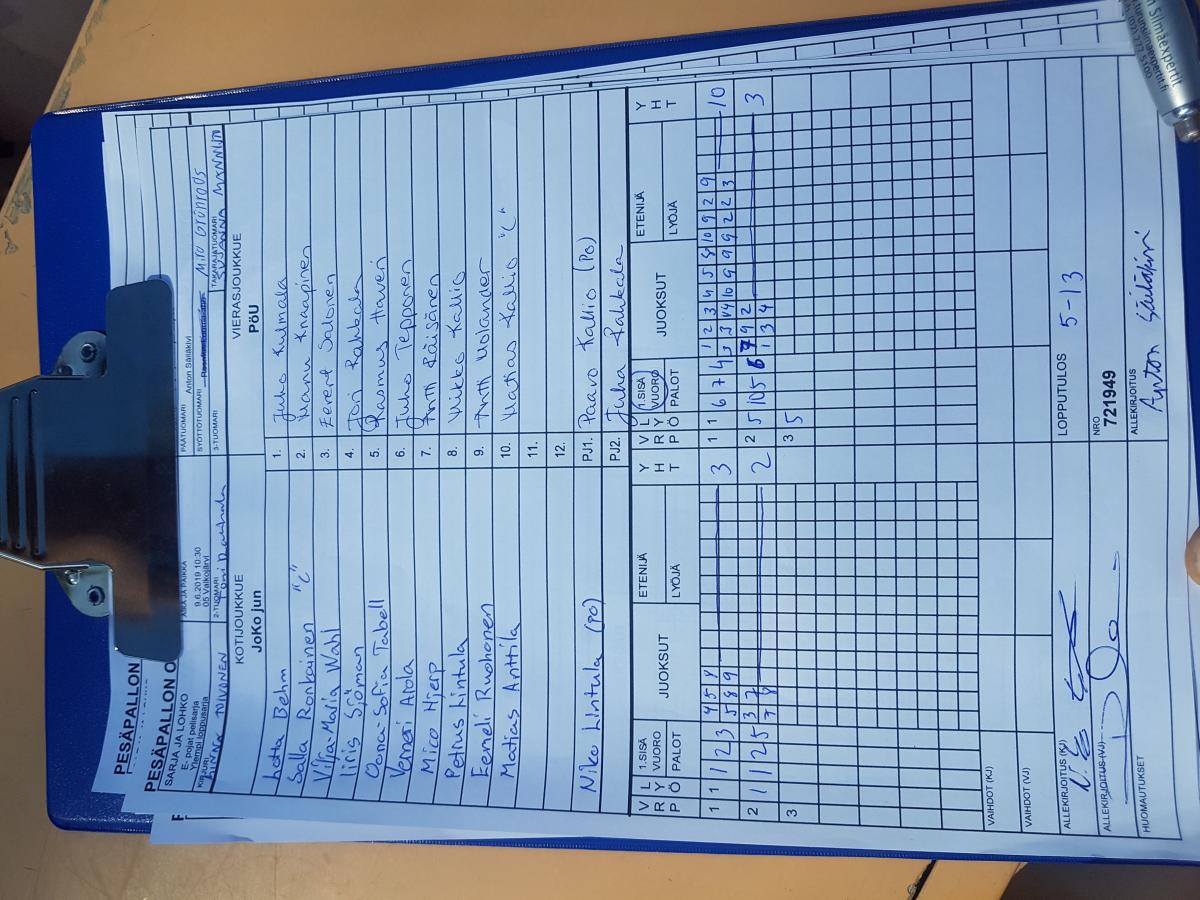 PESÄPALLON
PESÄPALLON O
SARJA JA LOHKO
E- pojat pelisarja
Ylempi loppusarja
KIRJURI
TOIVANEN
AIKA JA PAIKKA
9.6.2019 10:30
05 Valkojärvi
2-TUOMARI
PÄÄTUOMARI
Anton Säiläkivi
SYÖTTÖTUOMARI
3-TUOMARI
TAKARAJATUOMARI
SUSANNA MANNIM
KOTIJOUKKUE
JoKo jun
VIERASJOUKKUE
PöU
Lotta Behm
1. Juho Kulmala
Salla Ronkainen "C"
2. Manu Knaapinen
Vilja-Maria Wahl
3. Eerert Salonen
Iiris Sjöman
4. Joni Pahkala
Oona-Sofia Tabell
5. Rasmus Haveri
Veneri Arola
6. Juho Tepponen
Mico Hjerp
7. Antti Räisänen
Petrus Lintula
8. Viikko Kallio
Eemeli Ruohonen
9. Antti Molander
Matias Anttila
10. Matias Kallio "C"
11.
12.
Niko Lintula (PO)
PJ1. Paavo Kallio (PO)
PJ2. Juha Pahkala
V R P L Y Ö 1.SISÄ VUORO PALOT JUOKSUT ETENIJÄ LYÖJÄ Y H T
V R P L Y Ö 1.SISÄ VUORO PALOT JUOKSUT ETENIJÄ LYÖJÄ Y H T
1 1 1 2 3 4 5 8 3
5 8 9
1 1 6 7 4 1 2 3 4 5 8 10 9 2 9 10
3 3 4 10 9 9 9 2 2 3
2 1 1 2 5 3 7 2
7 8
2 5 10 5 6 7 9 2 3
1 3 4
3
3 5
VAIHDOT (KJ)
VAIHDOT (VJ)
ALLEKIRJOITUS (KJ)
LOPPUTULOS 5-13
ALLEKIRJOITUS (VJ)
NRO
721949
HUOMAUTUKSET
ALLEKIRJOITUS
Anton Säiläkivi
n Silmäexpertit
(02) 277 5100
silmäexpertit.fi